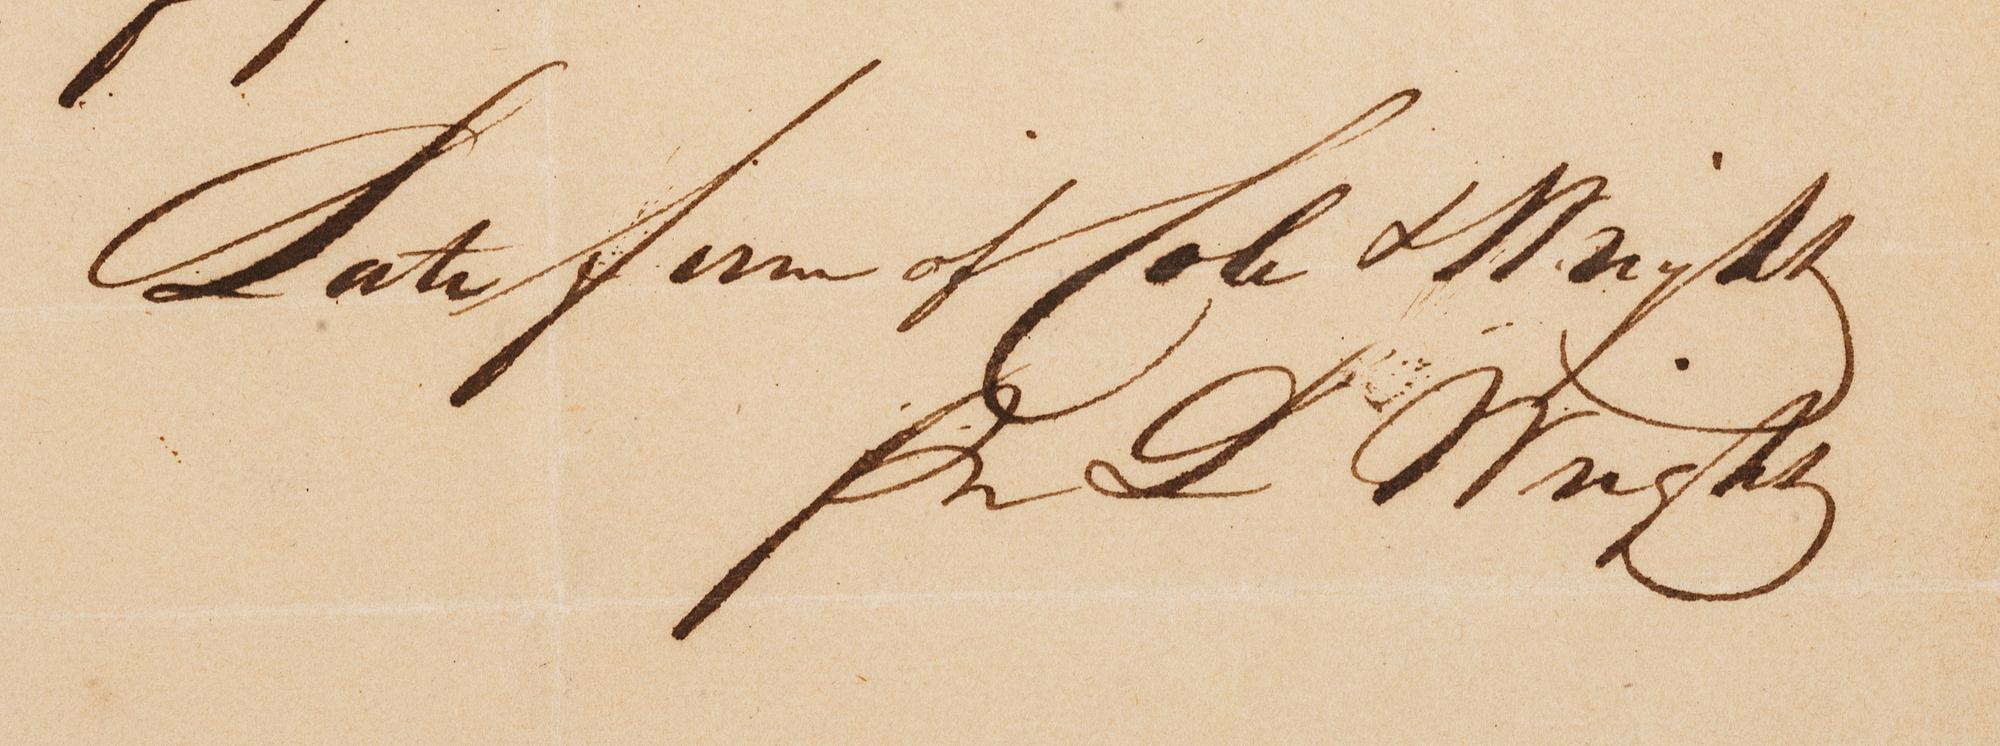 Late firm of Cole & Wright
Pr L Wright